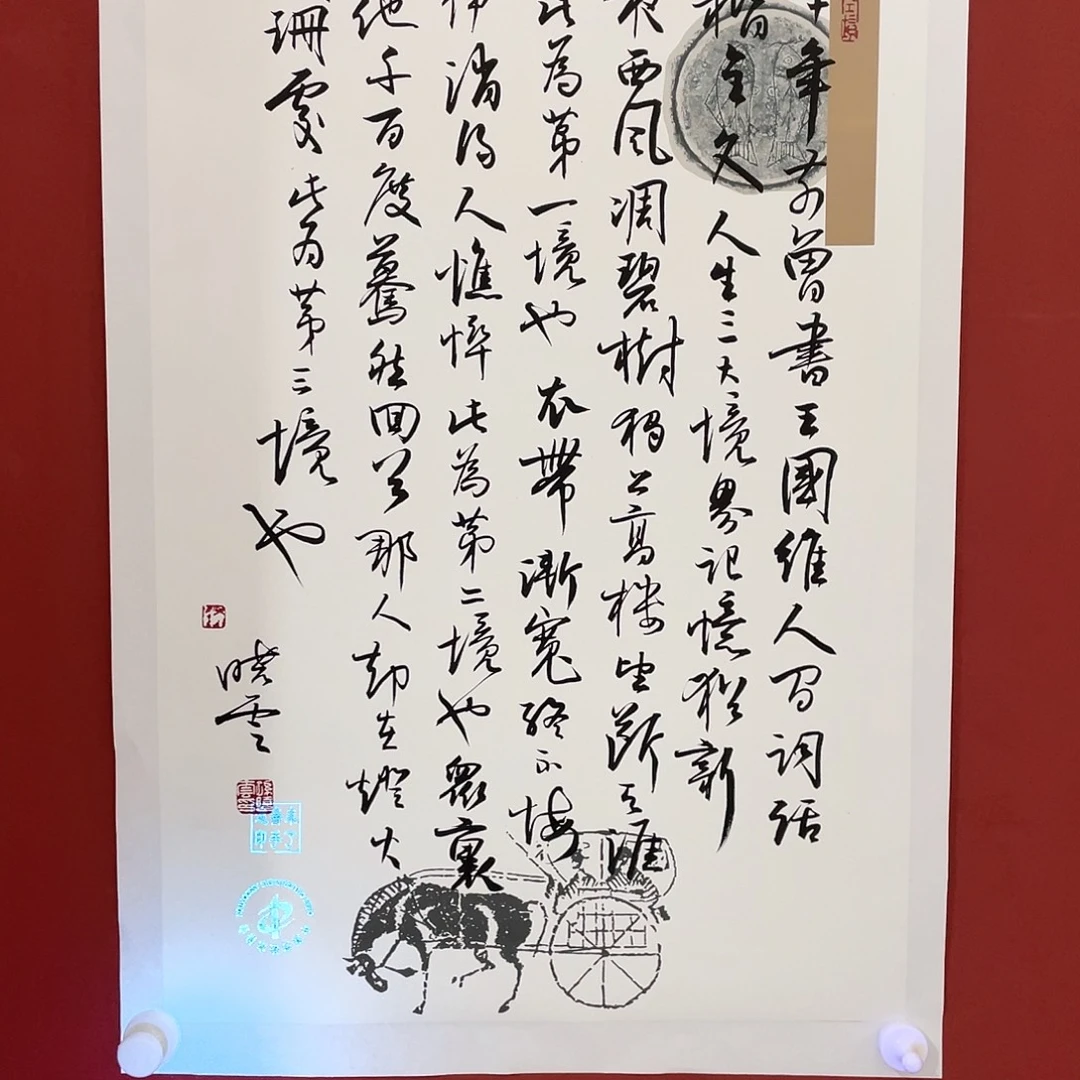 年前曾書王國維人间词话
文人生三大境界记憶猶新
夜西風凋碧樹獨上高樓望斷天涯
此為第一境也衣帶漸寬終不悔
伊消得人憔悴此為第二境也眾裏
他千百度驀然回首那人却在燈火
珊處此为第三境也
曉雲